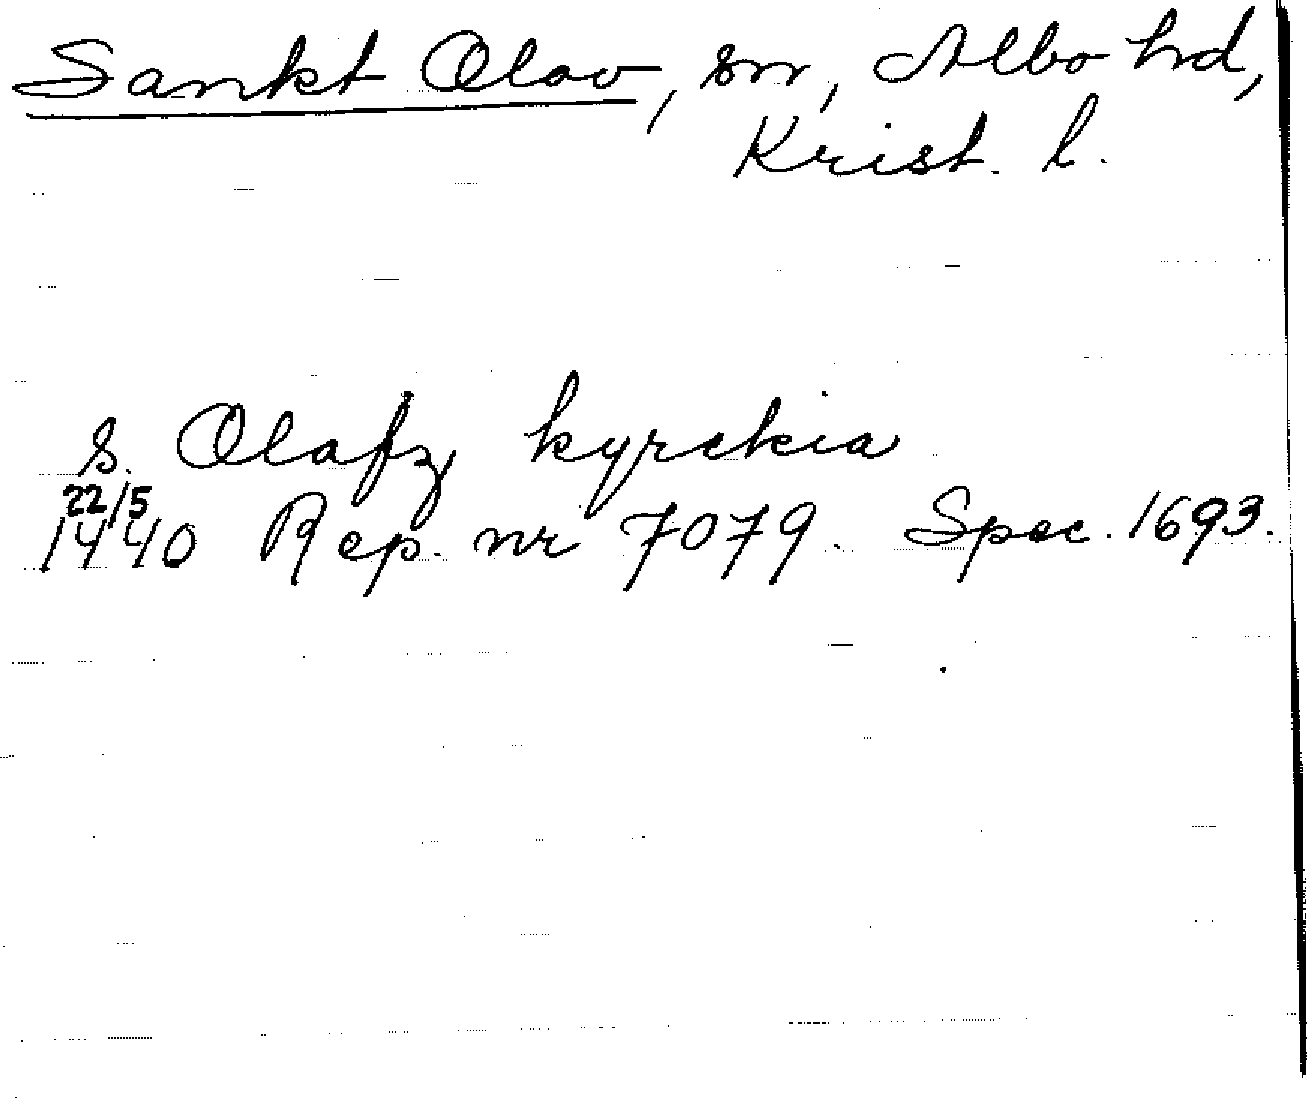 Sankt Olov, sn, Albo hd,
Krist. l.
s. Olafz kyrckia
22/5
1440 Rep. nr 7079. Spec. 1693.